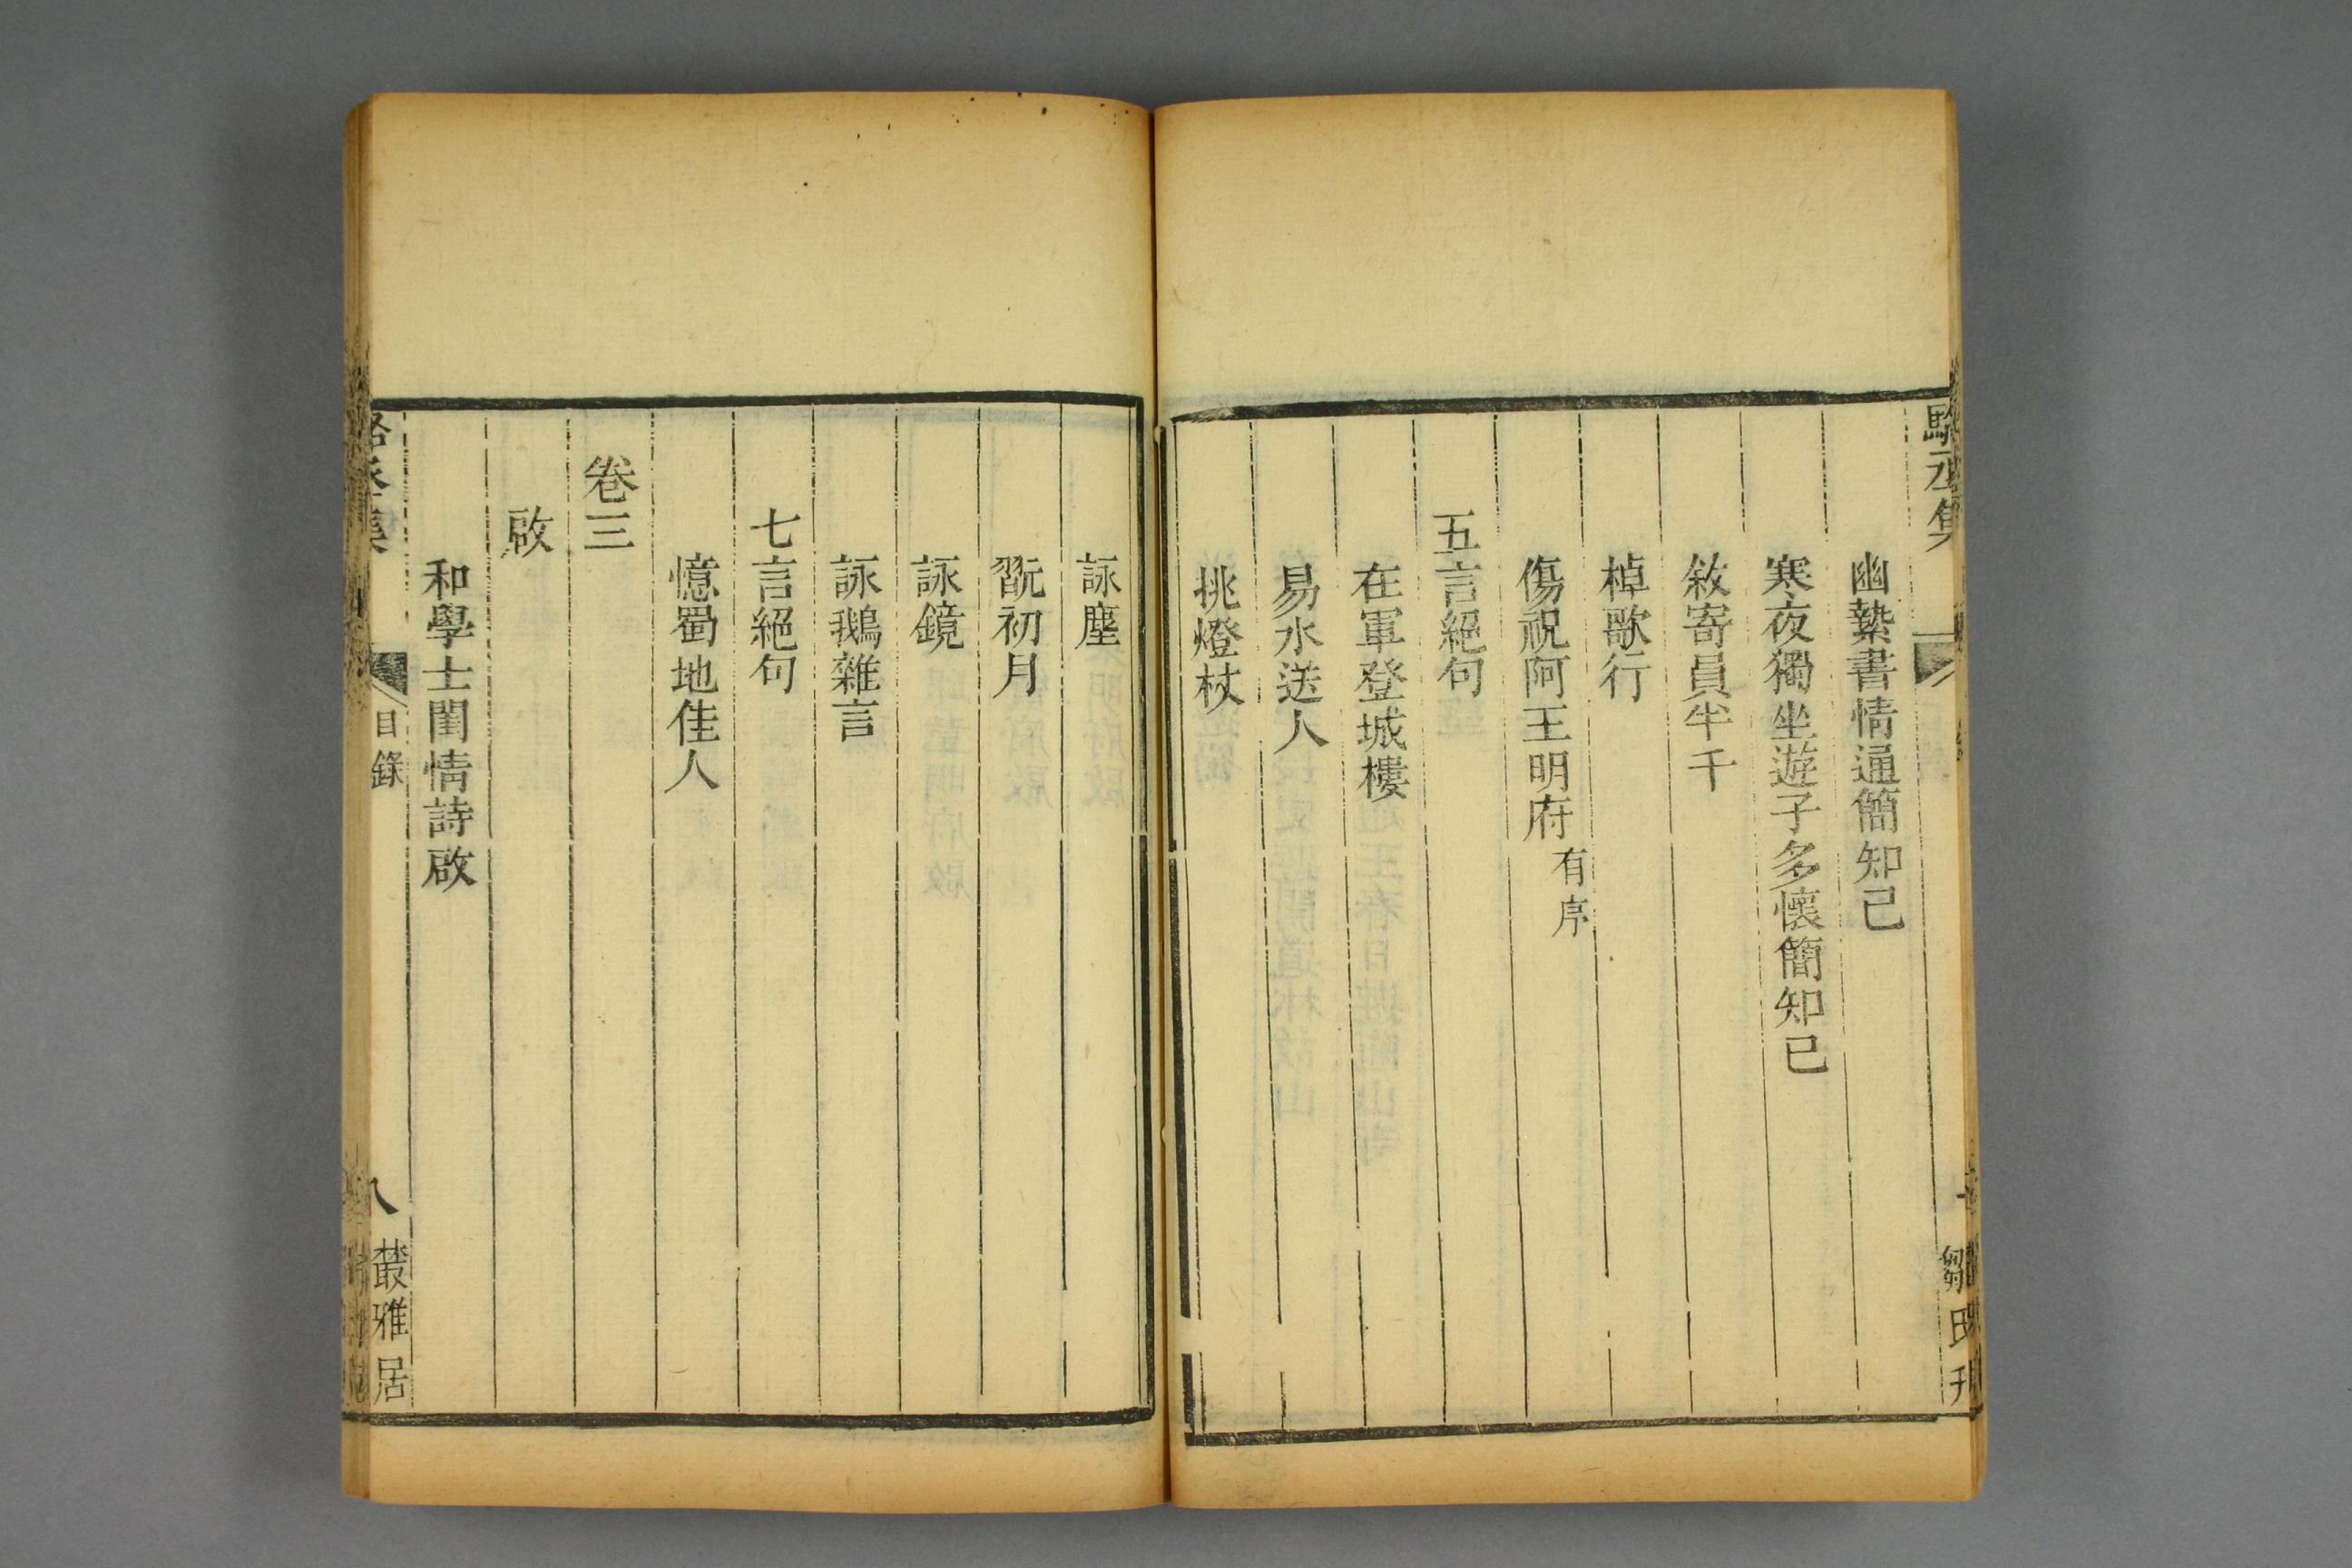 幽縶書情通簡知己
寒夜獨坐遊子多懷簡知己
敘寄員半千
棹歌行
傷祝阿王明府有序
五言絕句
在軍登城樓
易水送人
挑燈杖
詠塵
翫初月
詠鏡
詠鵝雜言
七言絕句
憶蜀地佳人
卷三
啟
和學士閨情詩啟
目錄
八
叢雅居